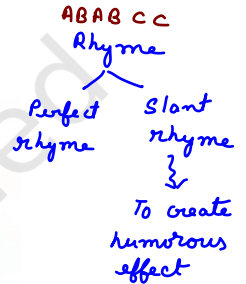 ABAB CC
Rhyme
Perfect rhyme
Slant rhyme
To create
humorous
effect